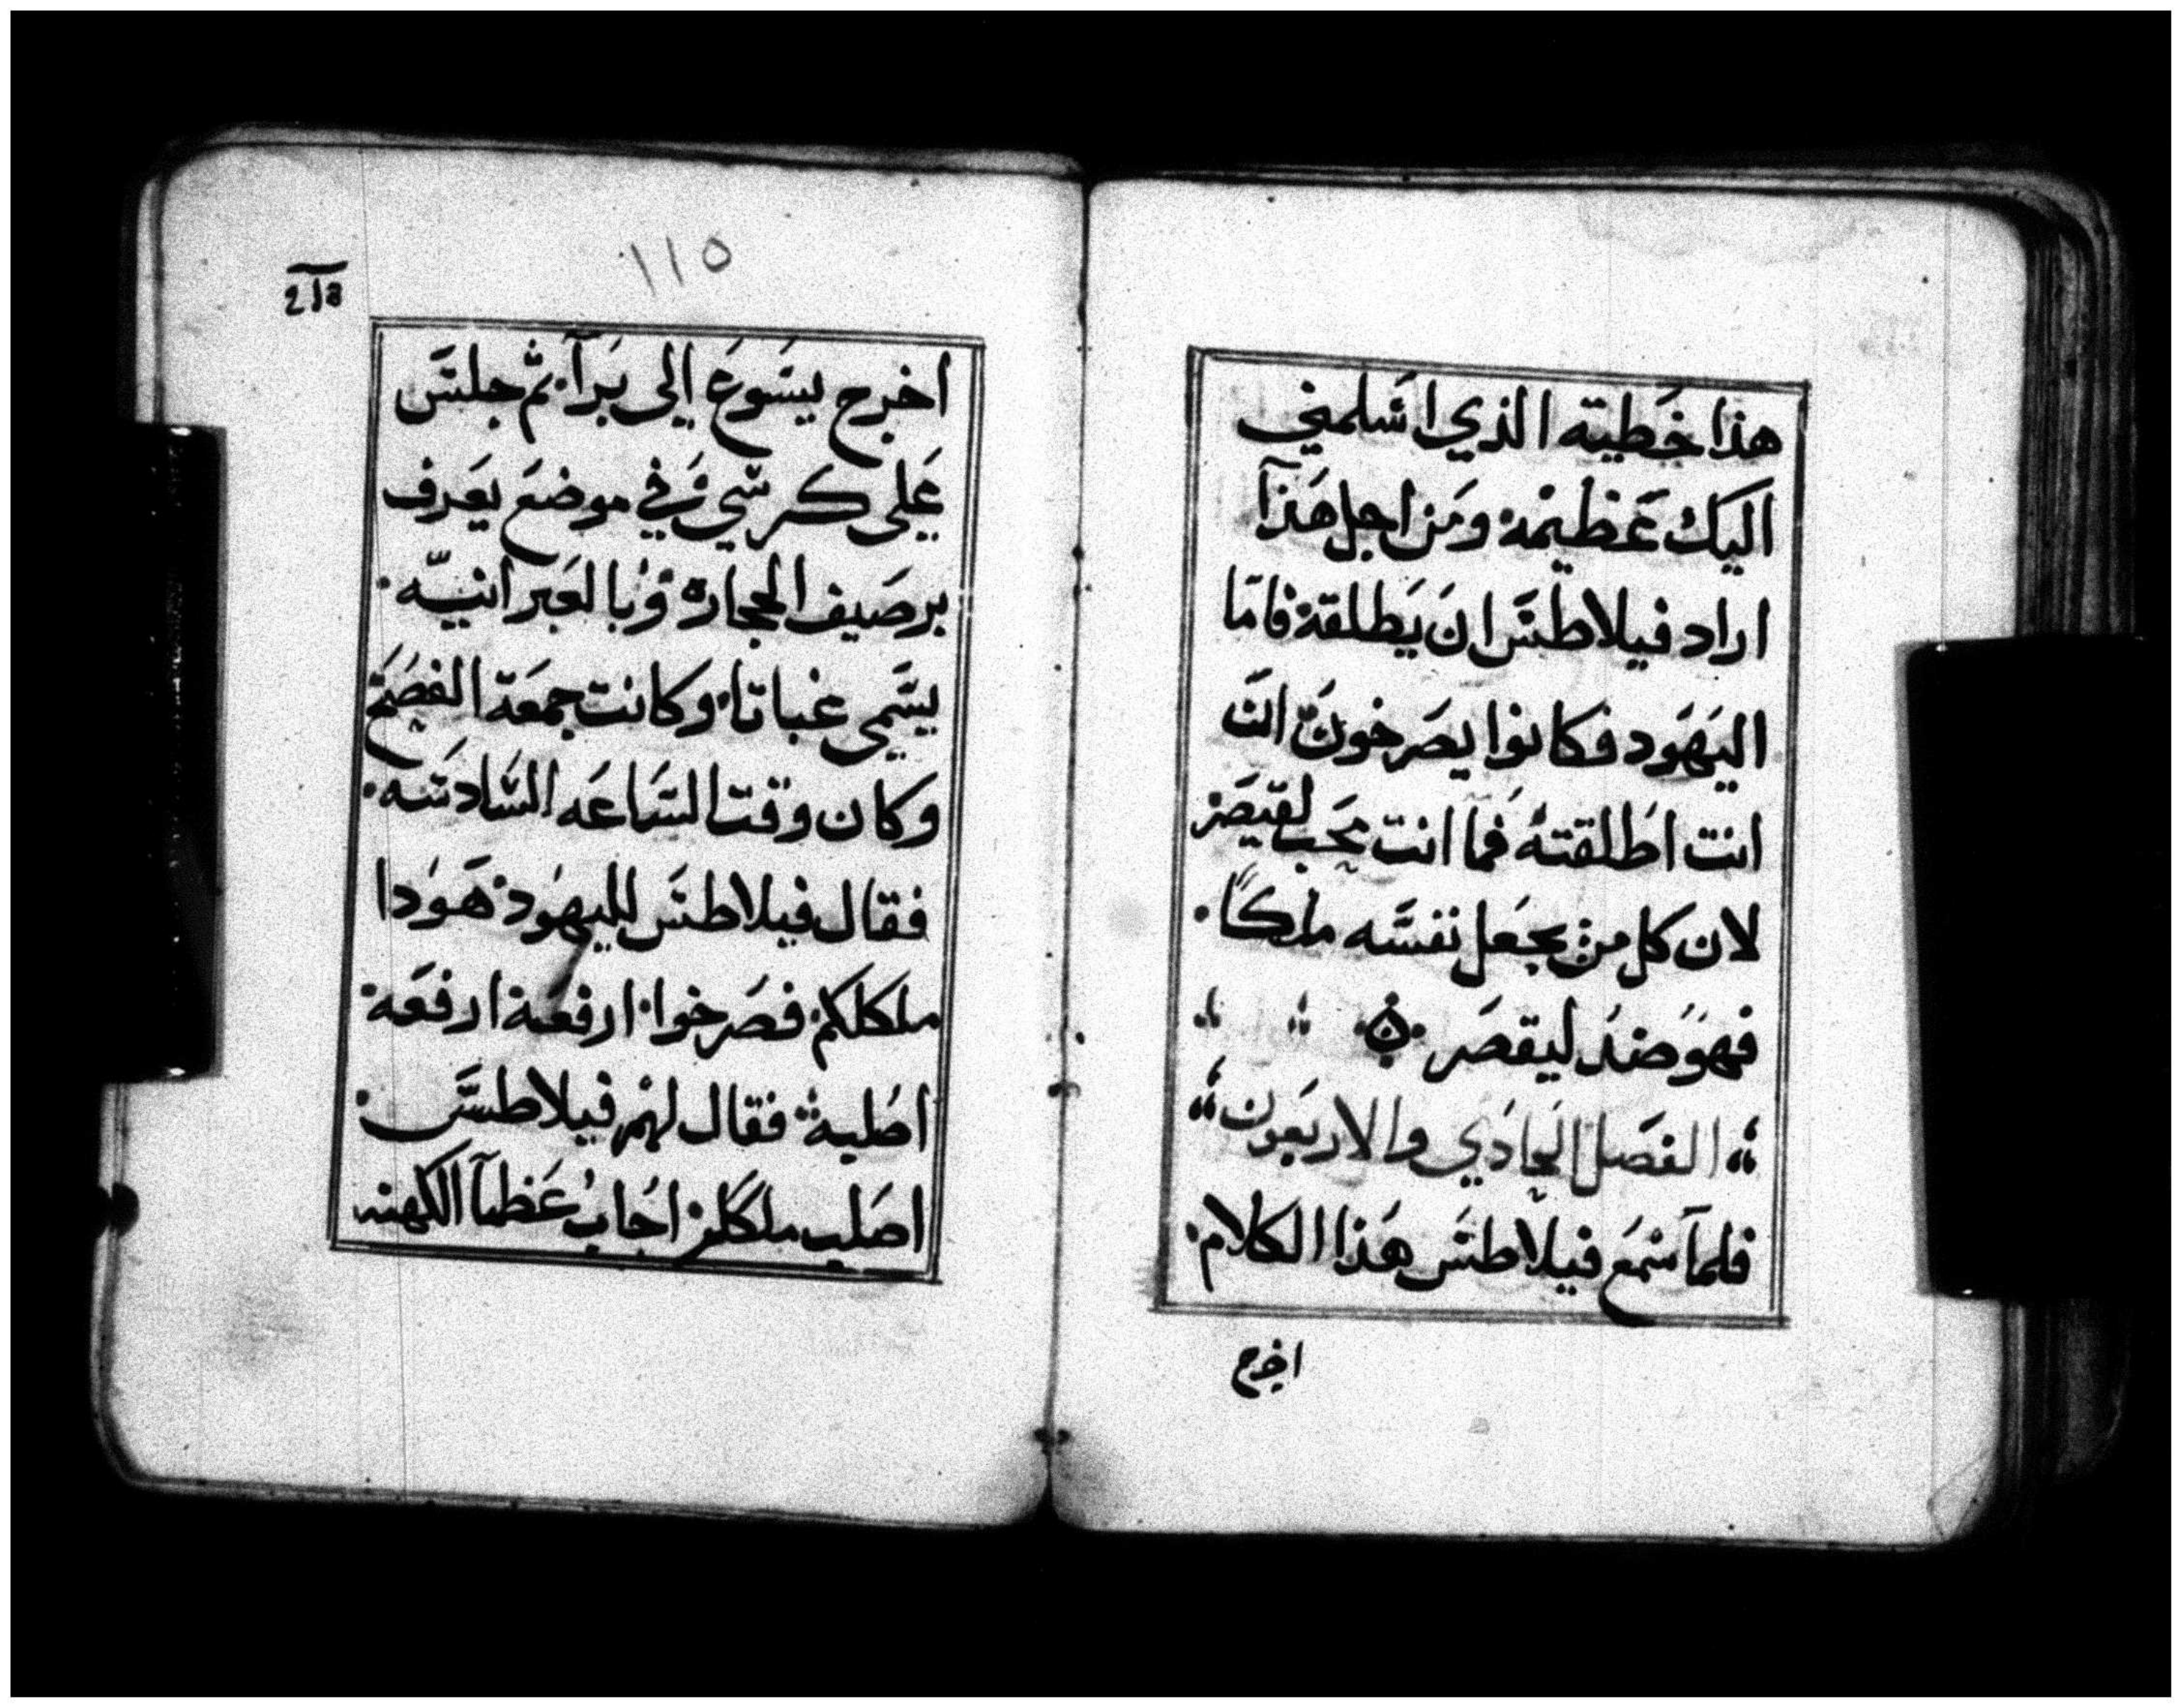 هذا خطيته الذي اسلمني
اليك عظيمة ومن اجل هذا
اراد فيلاطس ان يطلقة فاما
اليهود فكانوا يصرخون ان
انت اطلقته فما انت بمحب لقيصر
لان كل من يجعل نفسه ملكا
فهو ضد ليقصر
الفصل الحادي والاربعون
فلما سمع فيلاطس هذا الكلام
اخرج
١١٥
اخرج يسوع الي برا ثم جلس
علي كرسي في موضع يعرف
برصيف الحجارة وبالعبرانيه
يسمي غباتا وكانت جمعة الفصح
وكان وقت الساعه السادسه
فقال فيلاطس لليهود هودا
ملكلكم فصرخوا ارفعة ارفعة
اصلبة فقال لهم فيلاطس
اصلب ملككم اجاب عظما الكهنه